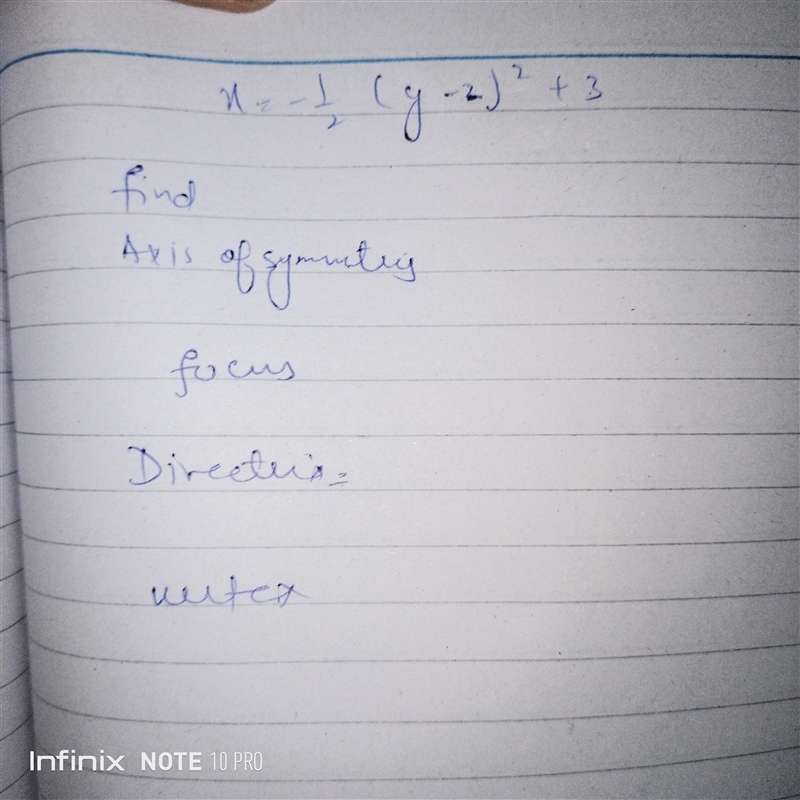 x = -1/2 (y - 2)² + 3
find
Axis of symmetry
focus
Directrix =
vertex
Infinix NOTE 10 PRO